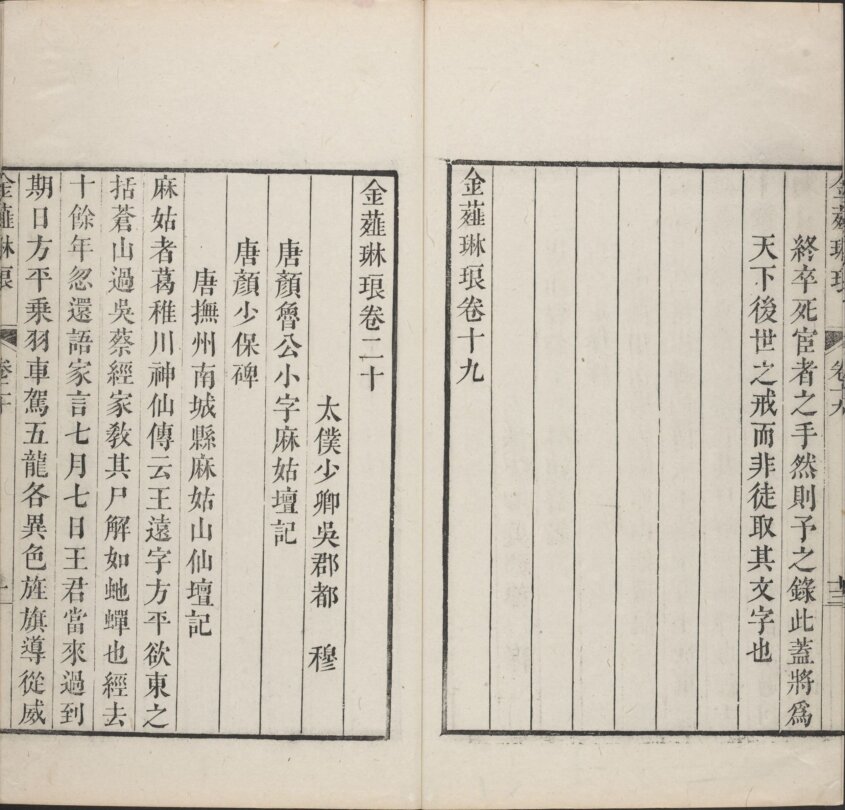 金薤琳琅
卷十九
十三
終卒死宦者之手然則予之錄此蓋將爲
天下後世之戒而非徒取其文字也
金薤琳琅卷十九
金薤琳琅卷二十
太僕少卿吳郡都 穆
唐顏魯公小字麻姑壇記
唐顏少保碑
唐撫州南城縣麻姑山仙壇記
麻姑者葛稚川神仙傳云王遠字方平欲東之
括蒼山過吳蔡經家敎其尸解如虵蟬也經去
十餘年忽還語家言七月七日王君當來過到
期日方平乘羽車駕五龍各異色旌旗導從威
金薤琳琅
卷二十
一